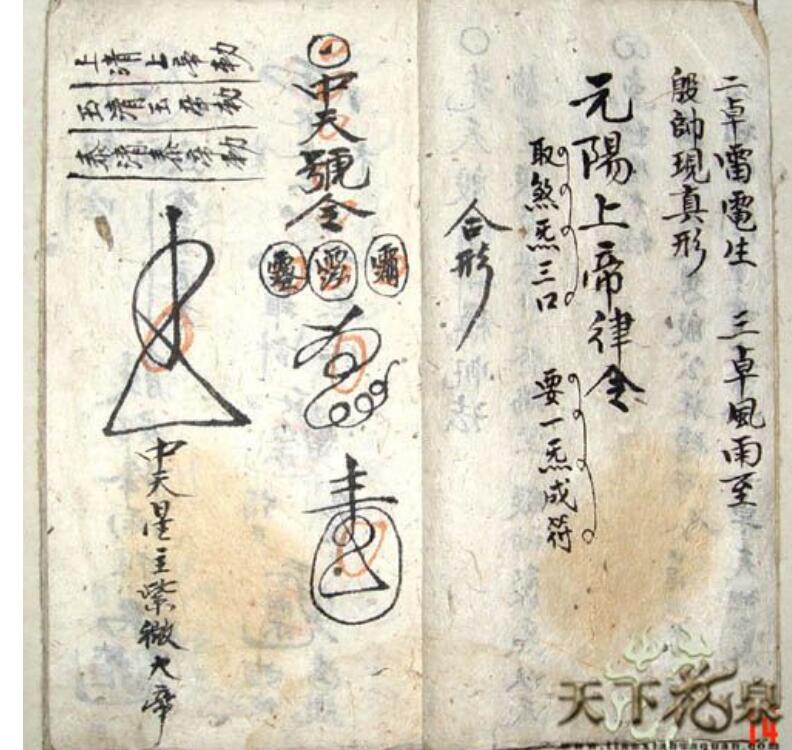 二卓雷電生 三卓風雨至
殷帥現真形
元陽上帝律令
取煞炁三口 要一炁成符
合形
中天號令
中天星主紫微大帝
上清上帝勅
玉清玉帝勅
泰清泰帝勅
天下花泉
14